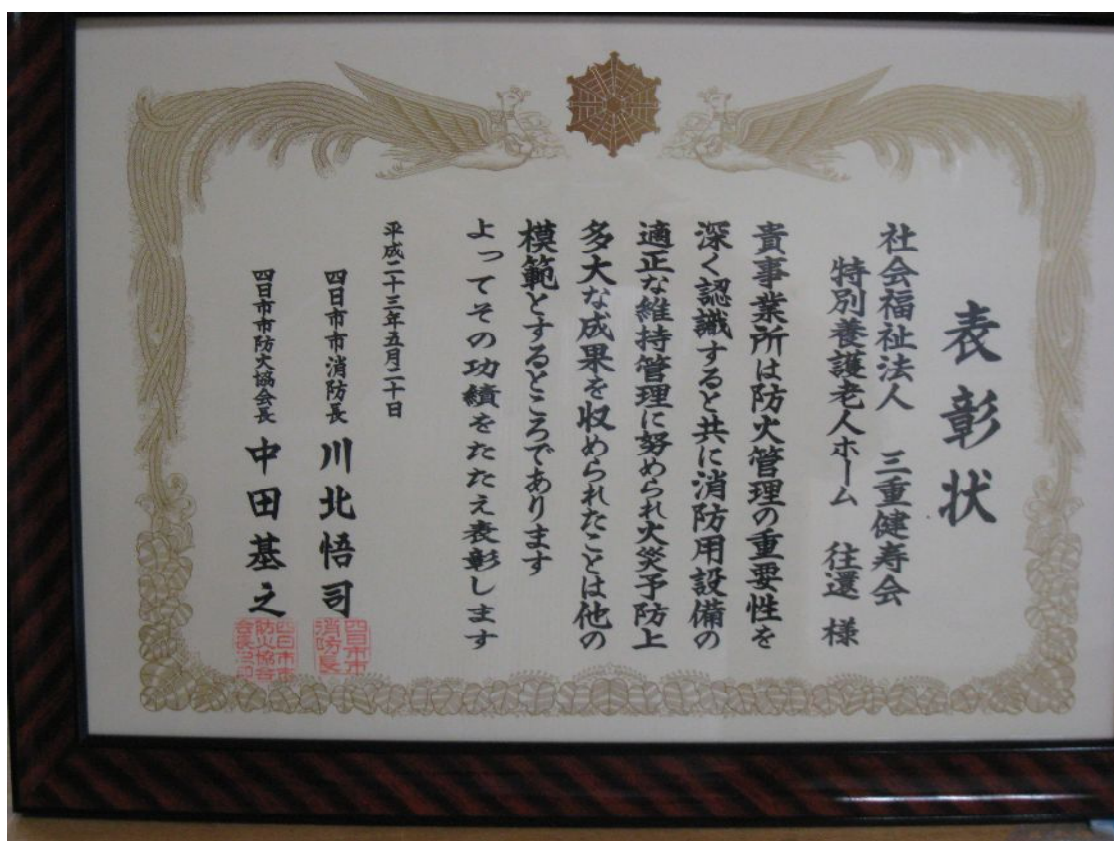 表彰状
社会福祉法人 三重健寿会
特別養護老人ホーム 往還 様
貴事業所は防火管理の重要性を
深く認識すると共に消防用設備の
適正な維持管理に努められ火災予防上
多大な成果を収められたことは他の
模範とするところであります
よってその功績をたたえ表彰します
平成二十三年五月二十日
四日市市消防長 川北悟司
四日市市防火協会長 中田基之
四日市市
消防長
四日市市
防火協会